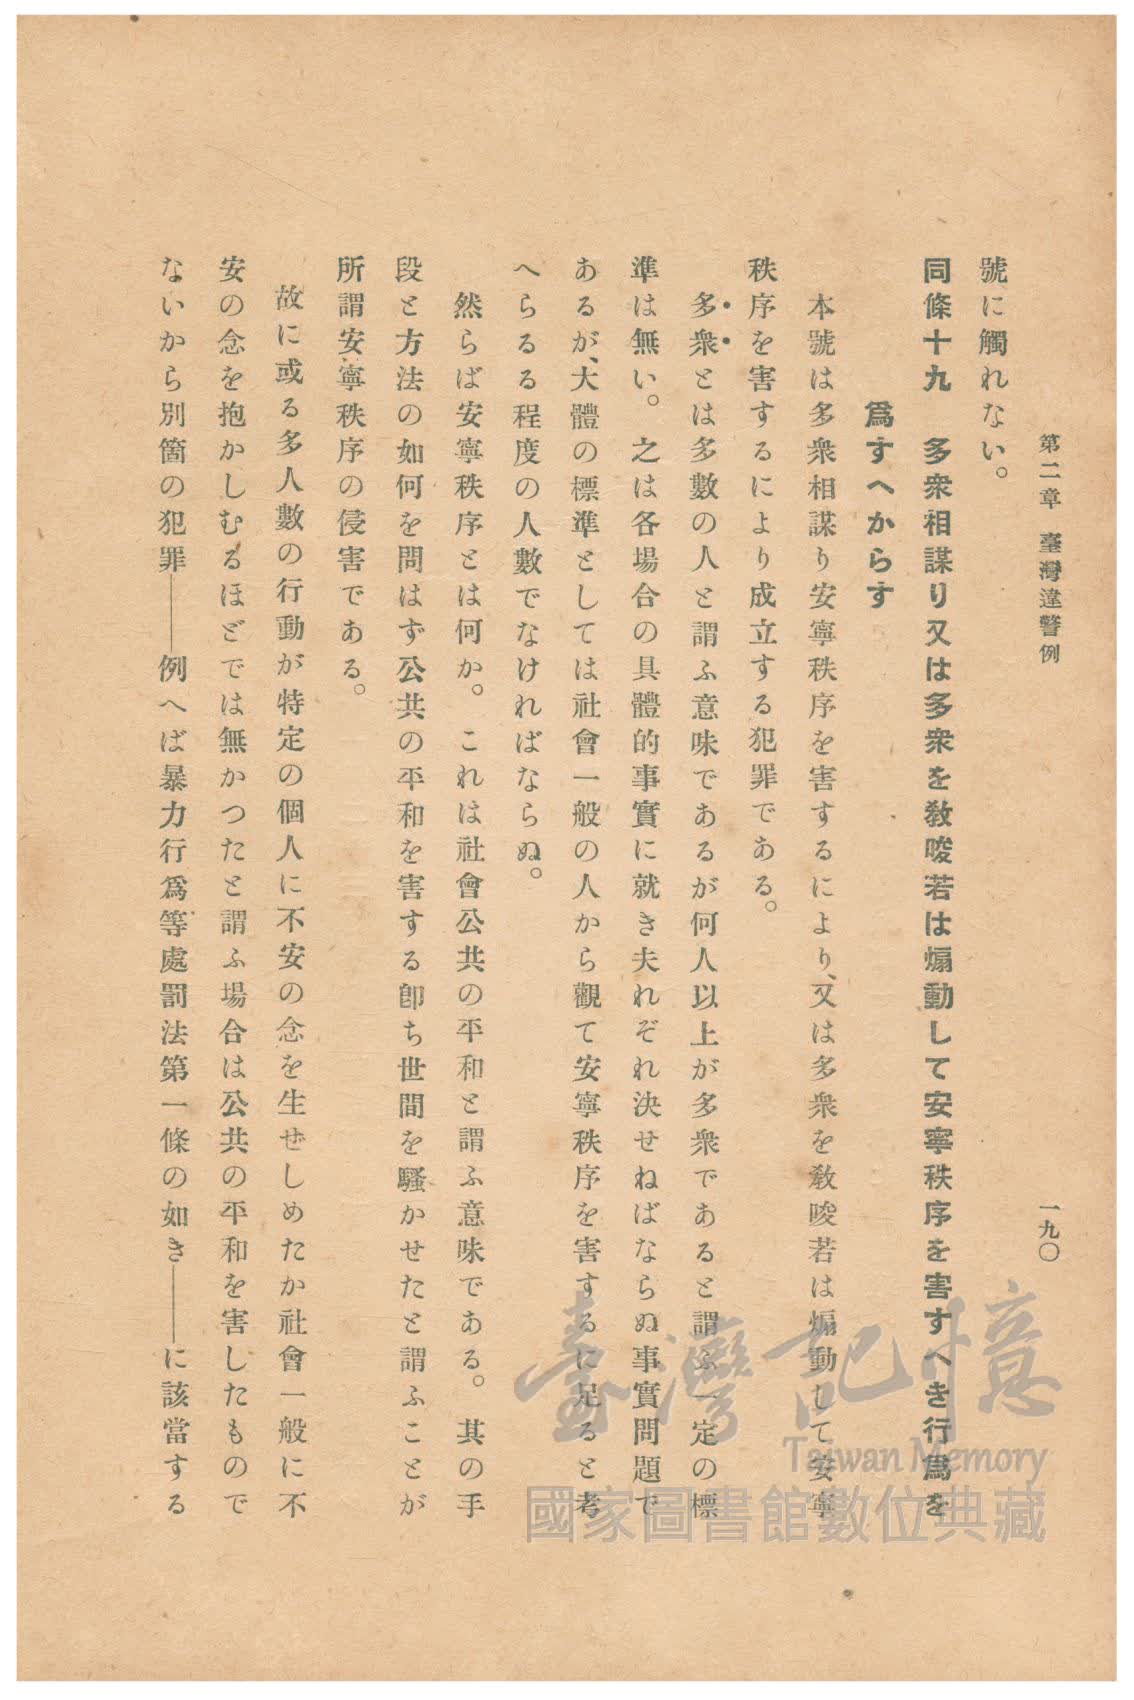 第二章　臺灣違警例
一九〇
號に觸れない。
同條十九　多衆相謀り又は多衆を敎唆若は煽動して安寧秩序を害すへき行爲を
爲すへからす
本號は多衆相謀り安寧秩序を害するにより、又は多衆を敎唆若は煽動して安寧
秩序を害するにより成立する犯罪である。
多衆とは多數の人と謂ふ意味であるが何人以上が多衆であると謂ふ一定の標
準は無い。之は各場合の具體的事實に就き夫れぞれ決せねばならぬ事實問題で
あるが、大體の標準としては社會一般の人から觀て安寧秩序を害するに足ると考
へらるる程度の人數でなければならぬ。
然らば安寧秩序とは何か。これは社會公共の平和と謂ふ意味である。其の手
段と方法の如何を問はず公共の平和を害する卽ち世間を騷かせたと謂ふことが
所謂安寧秩序の侵害である。
故に或る多人數の行動が特定の個人に不安の念を生ぜしめたか社會一般に不
安の念を抱かしむるほどでは無かつたと謂ふ場合は公共の平和を害したもので
ないから別箇の犯罪――例へば暴力行爲等處罰法第一條の如き――に該當する
臺灣記憶
Taiwan Memory
國家圖書館數位典藏